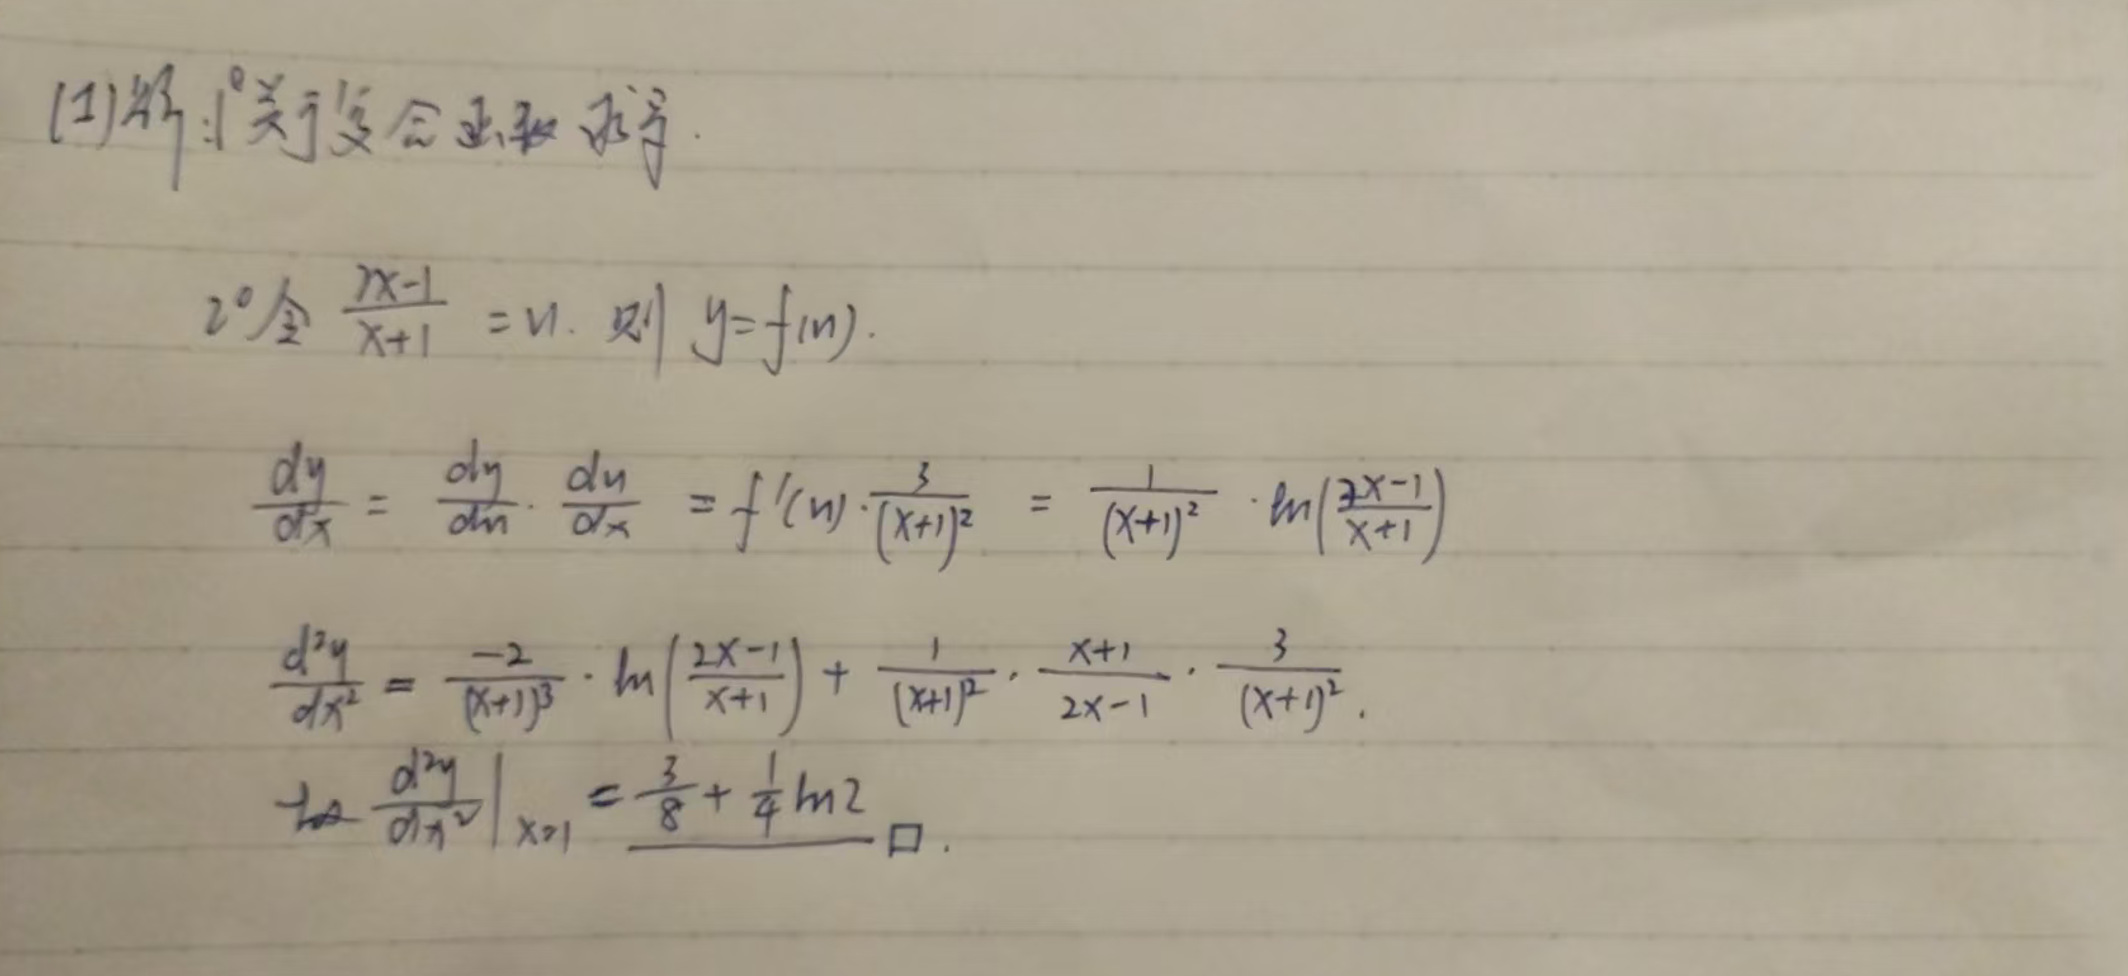 (1)解:1°关于复合函数求导.
2°令 (2x-1)/(x+1) = u. 则 y=f(u).
dy/dx = dy/du · du/dx = f'(u) · 3/(x+1)² = 1/(x+1)² · ln((2x-1)/(x+1))
d²y/dx² = -2/(x+1)³ · ln((2x-1)/(x+1)) + 1/(x+1)² · (x+1)/(2x-1) · 3/(x+1)².
d²y/dx²|x=1 = 3/8 + 1/4 ln2 □.